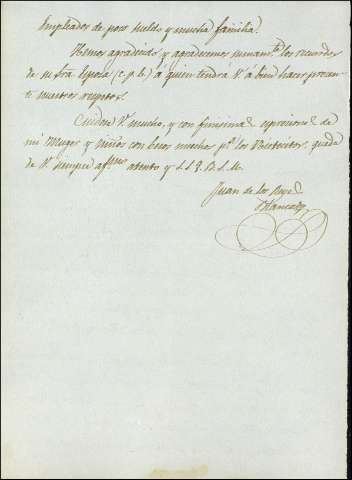 Empleados de poco sueldo y mucha familia.
Hemos agradecido y agradecemos sumamte los recuerdos
de su Sra Esposa (c. p. b.) á quien tendrá V. á bien hacer presen-
te nuestros respetos.
Cuidese V. mucho, y con finisimas espresiones de
mi Muger y niños con besos muchos pa los Pastorcitos, queda
de V. siempre afmo atento y S. S. Q. B. S. M.
Juan de los Reyes